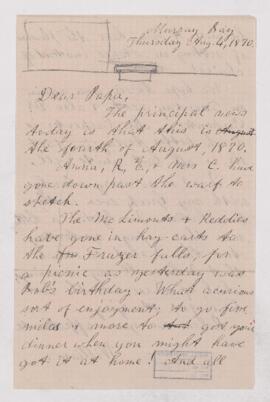 Murray Bay
Thursday Aug. 4, 1870.
Dear Papa,
The principal news
today is that this is August
the fourth of August, 1870.
Annie, R, E, & Mrs C. have
gone down past the warf to
sketch.
The McLimonts & Reddies
have gone in hay carts to
the Frazer falls, for
a picnic as yesterday was
Bob's birthday. What a curious
sort of enjoyment; to go five
miles & more to get your
dinner when you might have
got it at home! And all